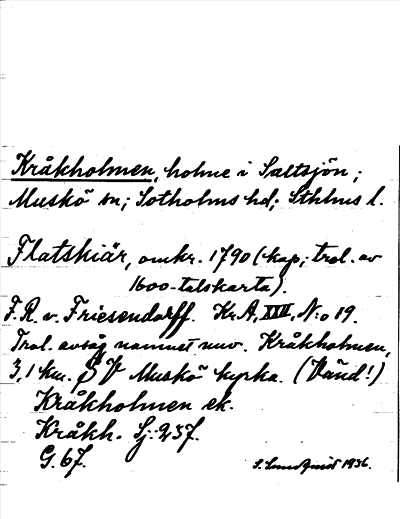 Kråkholmen, holme i Saltsjön;
Muskö sn; Sotholms hd; Sthlms l.
Flatskiär, omkr. 1790 (kop; trol. av
1600-talskarta).
F. R. v. Friesendorff. Kr.A, XVII, N:o 19.
Trol. avsåg namnet nuv. Kråkholmen,
3,1 km. S V Muskö kyrka. (Vänd!)
Kråkholmen ek.
Kråkh. Sj: 237.
G. 67.
S. Lundquist 1936.